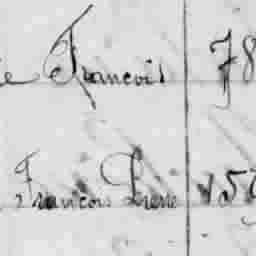 e François 78
François Pierre 157